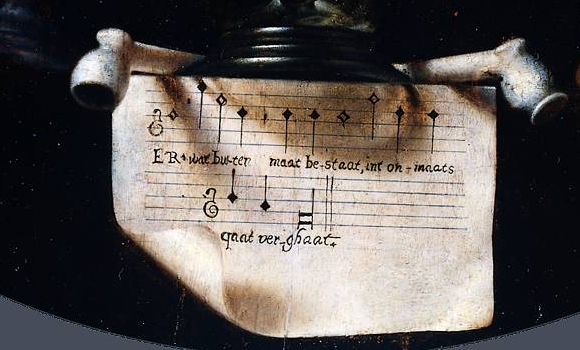 E R + wat bu-ten maat be-staat, int on-maats
qaat ver-ghaat.